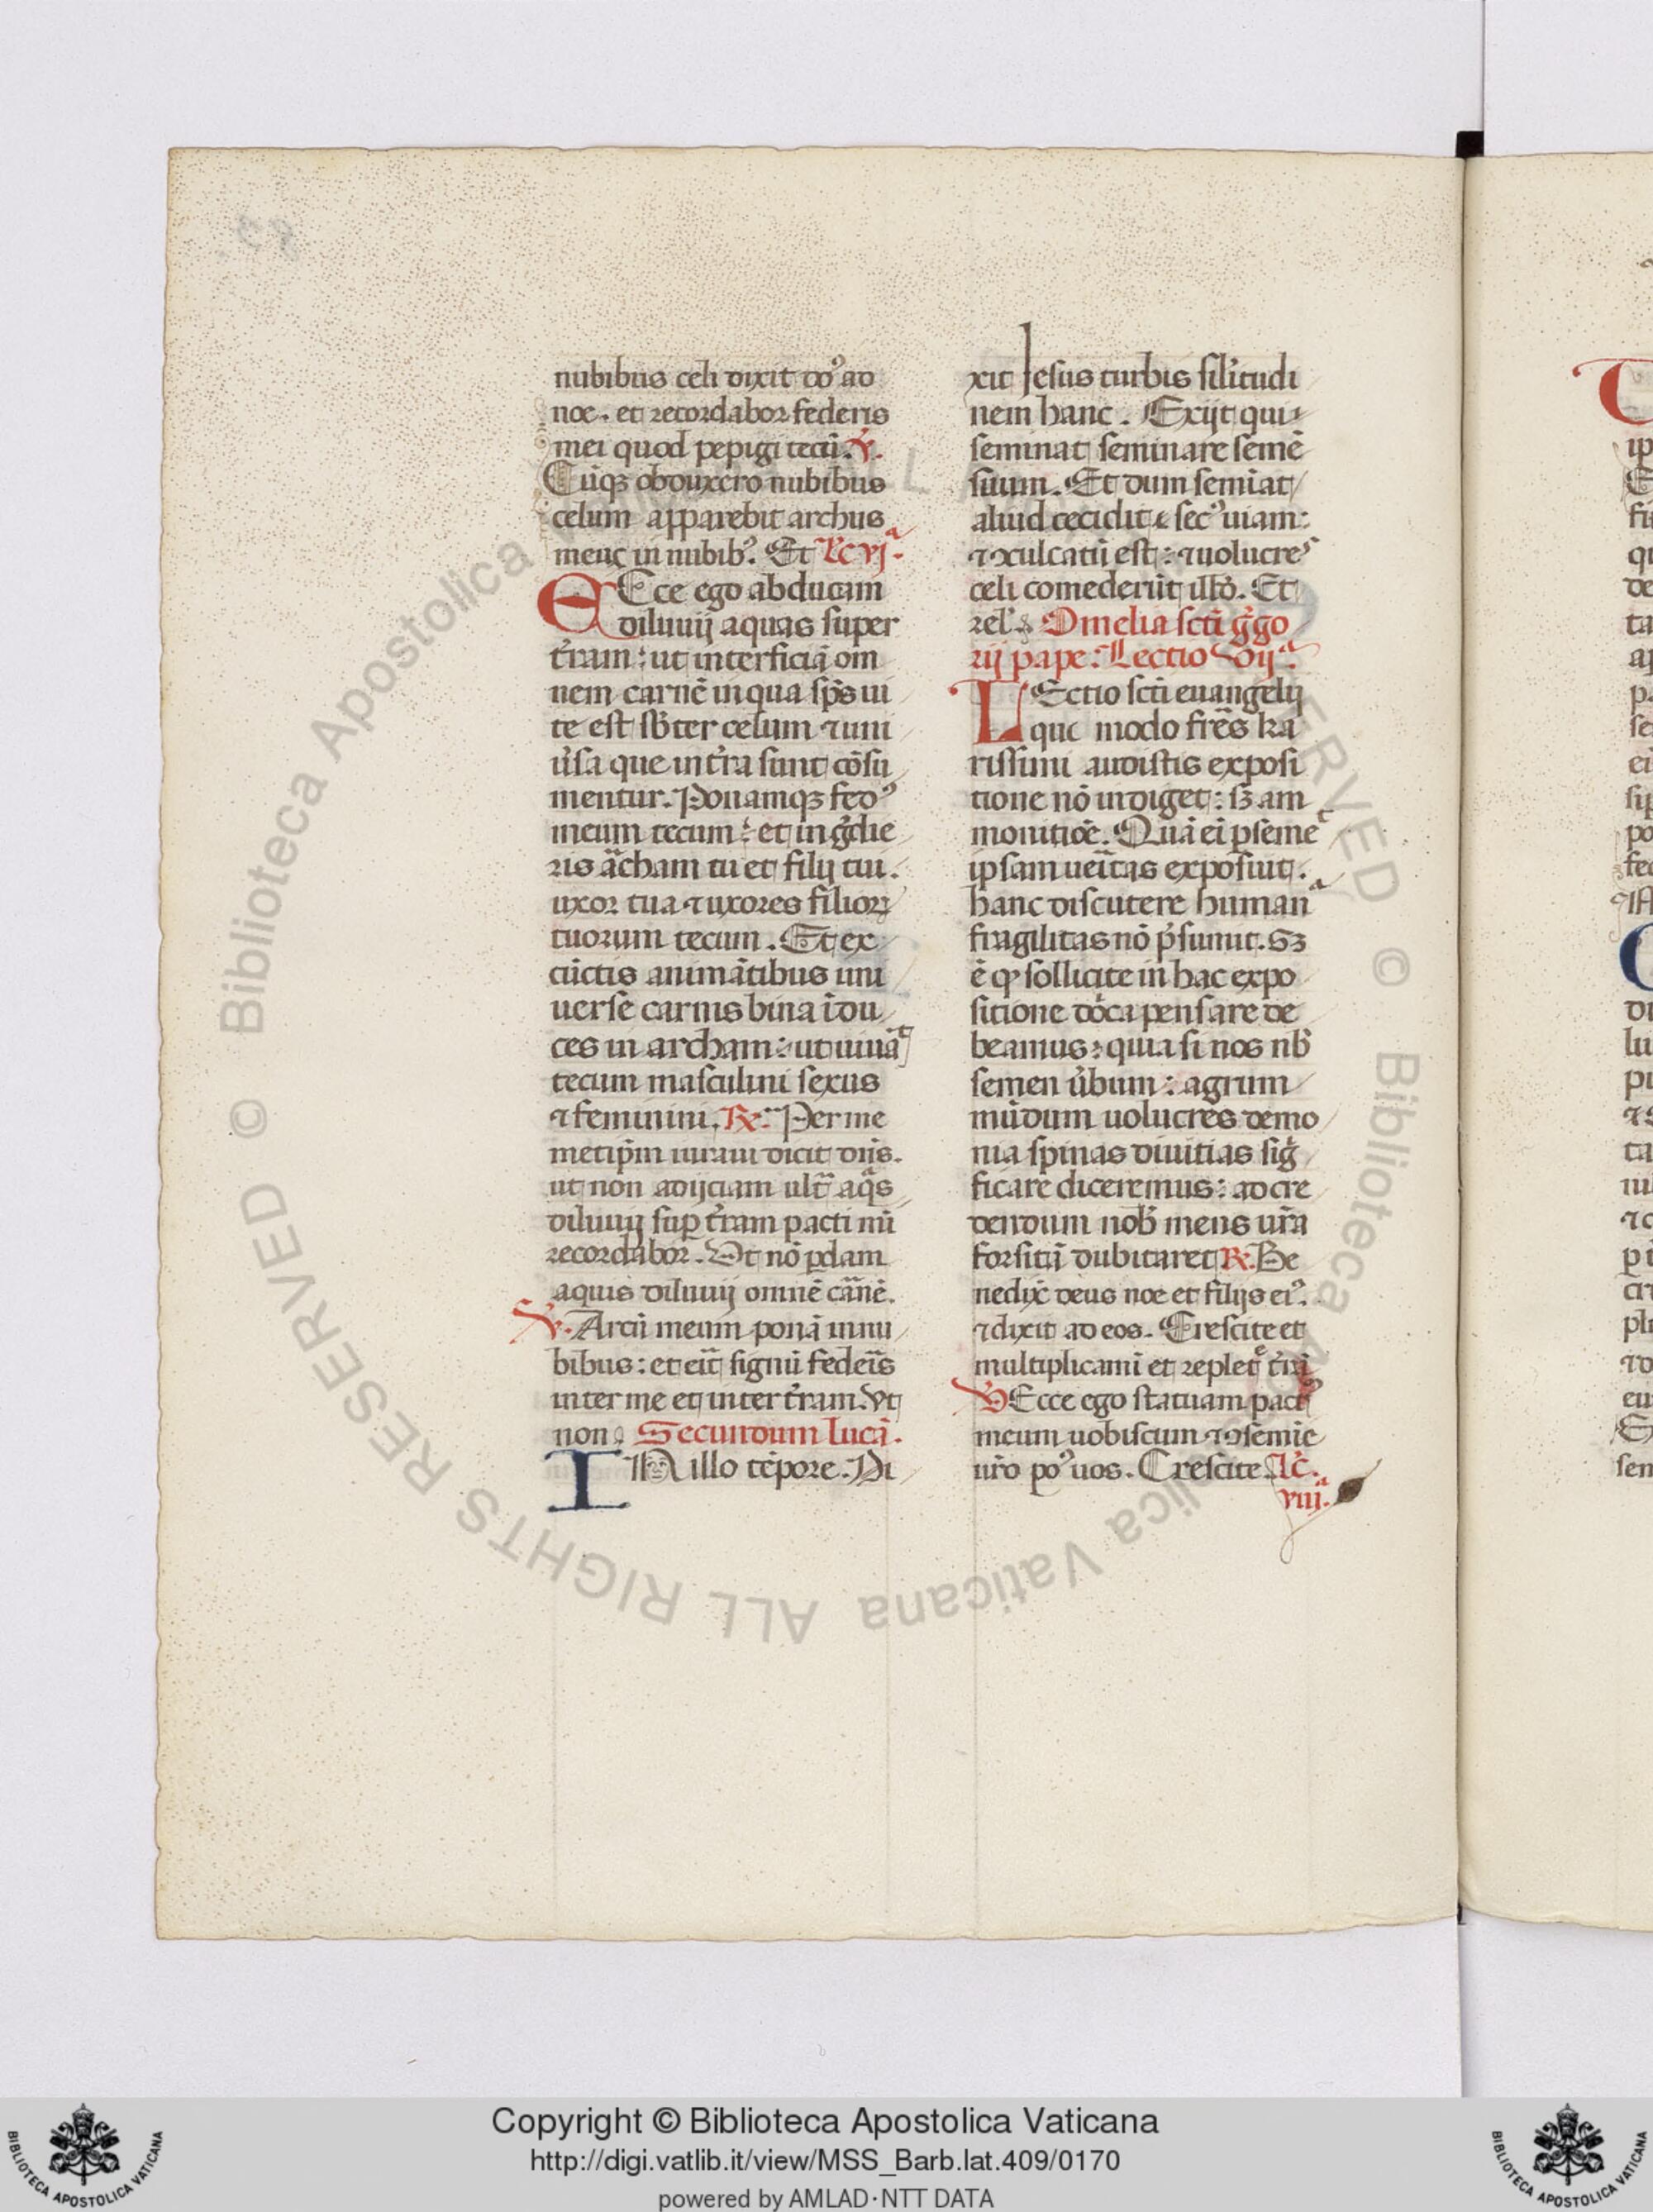 nubibus celi dixit dōꝰ ad
noe. et recordabor federis
mei quod pepigi tecū. ℣.
Cūqꝫ obduxero nubibus
celum apparebit archus
meuc in nubibꝰ. Et Lc vjª.
ECce ego abducam
diluuij aquas super
t̄ram: ut interficiā om
nem carnē in qua sp̄s ui
te est sb̄ter celum ⁊ uni
ūsa que in t̄ra sunt cōsu
mentur. Ponamqꝫ fedꝰ
meum tecum: et ingͥdie
ris ācham tu et filij tui.
uxor tua ⁊ uxores filioꝝ
tuorum tecum. Et ex
cūctis animātibus uni
uerse carnis bina īdu
ces in archam: ut uiuāt
tecum masculini sexus
⁊ feminini. ℟. Per me
metip̄m iuraui dicit dn̄s.
ut non adijciam ult̄ aqͣs
diluuij suꝑ t̄ram pacti mī
recordabor. Ut nō ꝑdam
aquis diluuij omnē cānē.
℣. Arcū meum ponā in nu
bibus: et eīt signū fedeīs
inter me et inter t̄ram. Vt
non. Secundum lucā.
IN illo tēpore. Di
xit Jesus turbis sil̄itudi
nem hanc. Exijt qui
seminat seminare semē
suum. Et dum semīat
aliud cecidit secꝰ uiam:
⁊ ꝯculcatū est: ⁊ uolucres
celi comederūt illḋ. Et
rel̄. Omelia sc̄ti gͥgo
rij pape. Lectio vijª.
LEctio sc̄ti euangelij
que modo fr̄es ka
rissimi audistis exposi
tione nō indiget: sꝫ am
monitiōe. Quā eī ꝑ semet
ipsam ueīitas exposuit.
hanc discutere humanª
fragilitas nō p̄sumit. Sꝫ
ē ꝙ sollicite in hac expo
sitione dōca pensare de
beamus: quia si nos nb̄
semen ūbum: agrum
mūdum uolucres demo
nia spinas diuitias sigͥ
ficare diceremus: ad cre
dendum nob̄ mens ur̄a
forsitā dubitaret ℟. Be
nedix̄ deus noe et filijs eiꝰ.
⁊ dixit ad eos. Crescite et
multiplicamī et replete t̄rā
℣ Ecce ego statuam pactū
meum uobiscum ⁊ ꝯ semīe
ur̄o poꝰ uos. Crescite Lc̄.
viijª.
Copyright © Biblioteca Apostolica Vaticana
http://digi.vatlib.it/view/MSS_Barb.lat.409/0170
powered by AMLAD·NTT DATA